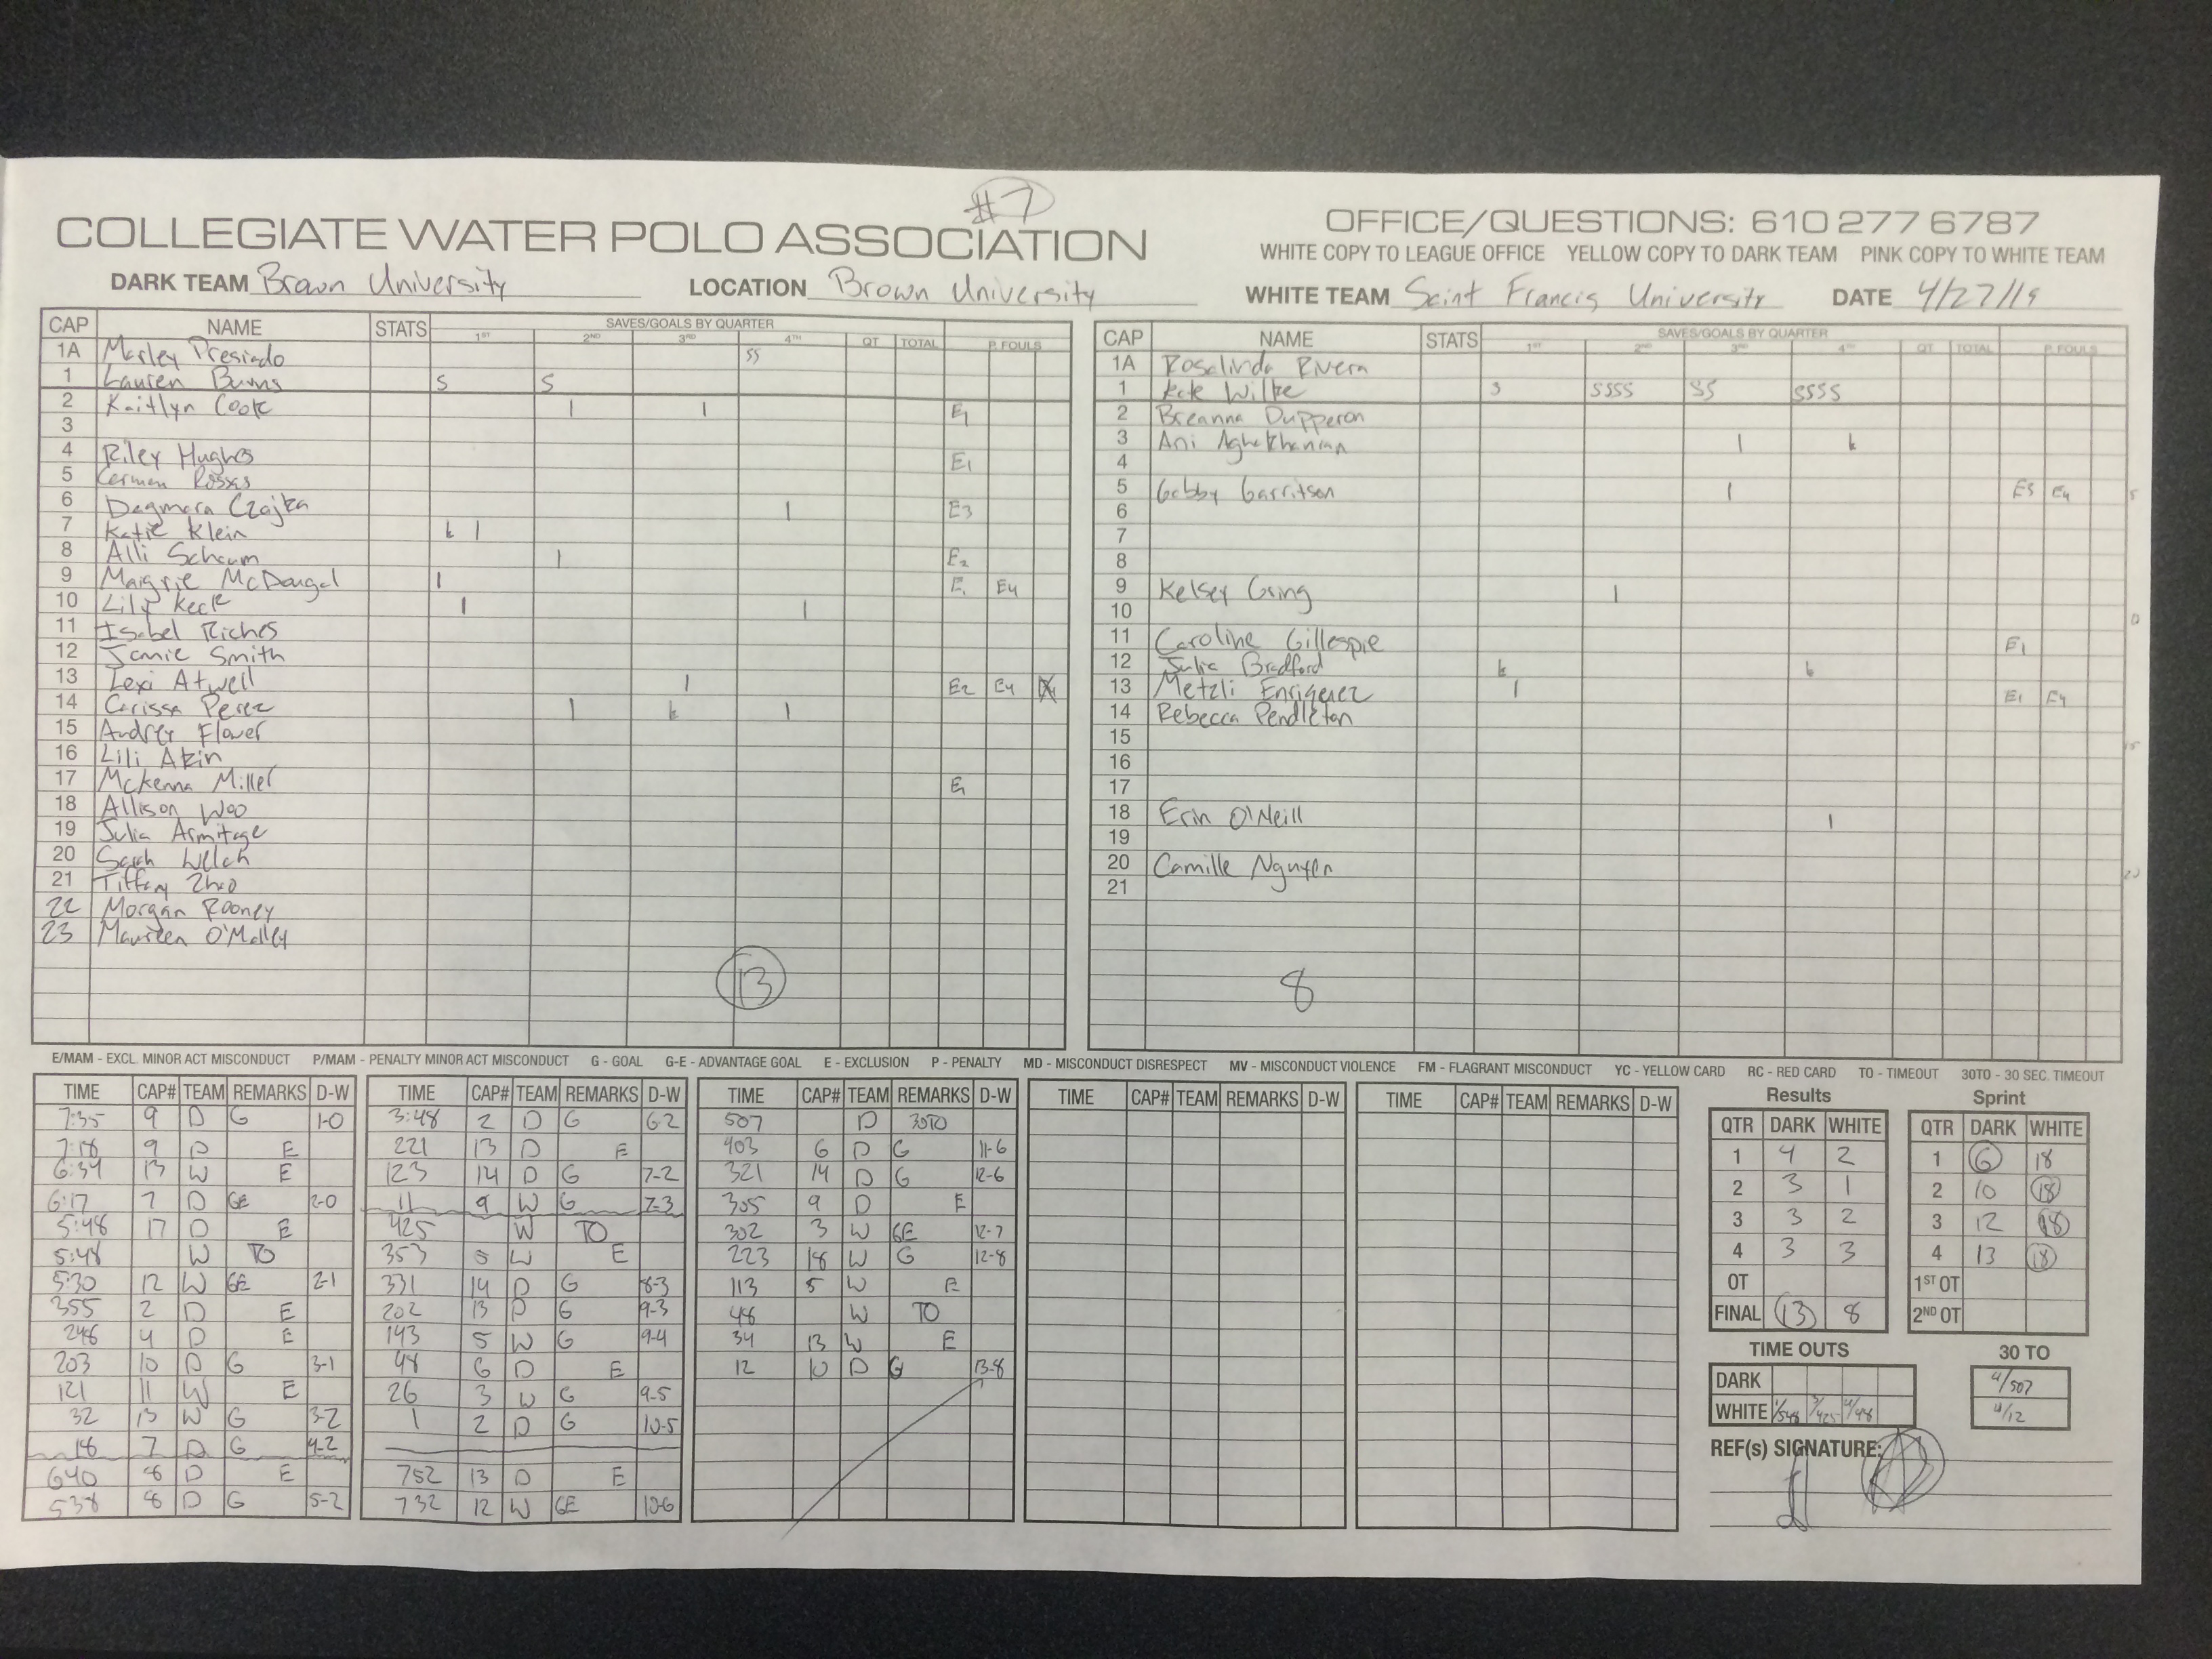 #7
COLLEGIATE WATER POLO ASSOCIATION
OFFICE/QUESTIONS: 610 277 6787
WHITE COPY TO LEAGUE OFFICE YELLOW COPY TO DARK TEAM PINK COPY TO WHITE TEAM
DARK TEAM Brown University LOCATION Brown University WHITE TEAM Saint Francis University DATE 4/27/19
CAP NAME STATS SAVES/GOALS BY QUARTER
1ST 2ND 3RD 4TH OT TOTAL P. FOULS
1A Marley Presiado SS
1 Lauren Burns S S
2 Kaitlyn Cook | | E1
3
4 Riley Hughes E1
5 Carmen Rosas
6 Dagmara Czajka | E3
7 Katie Klein k |
8 Alli Schaum | E2
9 Maigrie McDougal | E1 E4
10 Lily Keck | |
11 Isabel Riches
12 Jamie Smith
13 Lexi Atwell | E2 E4
14 Carissa Perez | k |
15 Audrey Flower
16 Lili Akin
17 McKenna Miller E1
18 Allison Woo
19 Julia Armitage
20 Sarah Welch
21 Tiffany Zhao
22 Morgan Rooney
23 Maureen O'Malley
13
CAP NAME STATS SAVES/GOALS BY QUARTER
1ST 2ND 3RD 4TH OT TOTAL P. FOULS
1A Rosalinda Rivera
1 Kate Wilke S SSSS SS SSSS
2 Breanna Dupperon
3 Ani Aghakhanian | k
4
5 Gabby Garritson | E3 E4
6
7
8
9 Kelsey Gring |
10
11 Caroline Gillespie E1
12 Julia Bradford k k
13 Metzli Enriquez | E1 E4
14 Rebecca Pendleton
15
16
17
18 Erin O'Neill |
19
20 Camille Nguyen
21
8
E/MAM - EXCL. MINOR ACT MISCONDUCT P/MAM - PENALTY MINOR ACT MISCONDUCT G - GOAL G-E - ADVANTAGE GOAL E - EXCLUSION P - PENALTY MD - MISCONDUCT DISRESPECT MV - MISCONDUCT VIOLENCE FM - FLAGRANT MISCONDUCT YC - YELLOW CARD RC - RED CARD TO - TIMEOUT 30TO - 30 SEC. TIMEOUT
TIME CAP# TEAM REMARKS D-W
7:35 9 D G 1-0
7:18 9 D E
6:34 13 W E
6:17 7 D GE 2-0
5:48 17 D E
5:48 W TO
5:30 12 W GE 2-1
355 2 D E
246 4 D E
203 10 D G 3-1
121 11 W E
32 13 W G 3-2
18 7 D G 4-2
640 8 D E
538 8 D G 5-2
TIME CAP# TEAM REMARKS D-W
3:48 2 D G 6-2
221 13 D E
123 14 D G 7-2
11 9 W G 7-3
425 W TO
353 5 W E
331 14 D G 8-3
202 13 D G 9-3
143 5 W G 9-4
48 6 D E
26 3 W G 9-5
1 2 D G 10-5
752 13 D E
732 12 W GE 10-6
TIME CAP# TEAM REMARKS D-W
507 D 30TO
403 6 D G 11-6
321 14 D G 12-6
305 9 D E
302 3 W GE 12-7
223 18 W G 12-8
113 5 W E
48 W TO
34 13 W E
12 10 D G 13-8
TIME CAP# TEAM REMARKS D-W
TIME CAP# TEAM REMARKS D-W
Results
QTR DARK WHITE
1 4 2
2 3 1
3 3 2
4 3 3
OT
FINAL 13 8
Sprint
QTR DARK WHITE
1 6 18
2 10 18
3 12 18
4 13 18
1ST OT
2ND OT
TIME OUTS
DARK
WHITE 1/548 3/425 4/48
30 TO
4/507
4/12
REF(s) SIGNATURE: